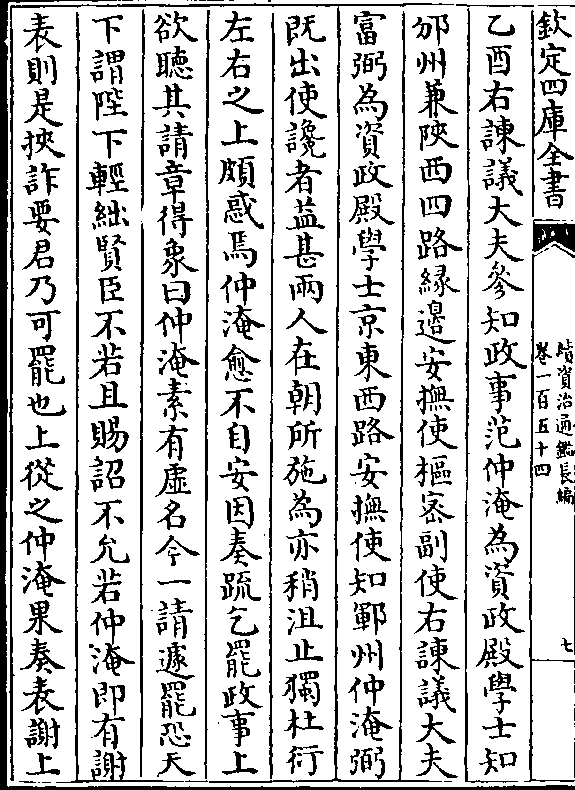 欽定四庫全書
續資治通鑑長編
卷一百五十四
七
乙酉右諫議大夫參知政事范仲淹為資政殿學士知
邠州兼陝西四路緣邊安撫使樞密副使右諫議大夫
富弼為資政殿學士京東西路安撫使知鄆州仲淹弼
既出使讒者益甚兩人在朝所施為亦稍沮止獨杜衍
左右之上頗惑焉仲淹愈不自安因奏疏乞罷政事上
欲聽其請章得象曰仲淹素有虛名今一請遽罷恐天
下謂陛下輕絀賢臣不若且賜詔不允若仲淹即有謝
表則是挾詐要君乃可罷也上從之仲淹果奏表謝上